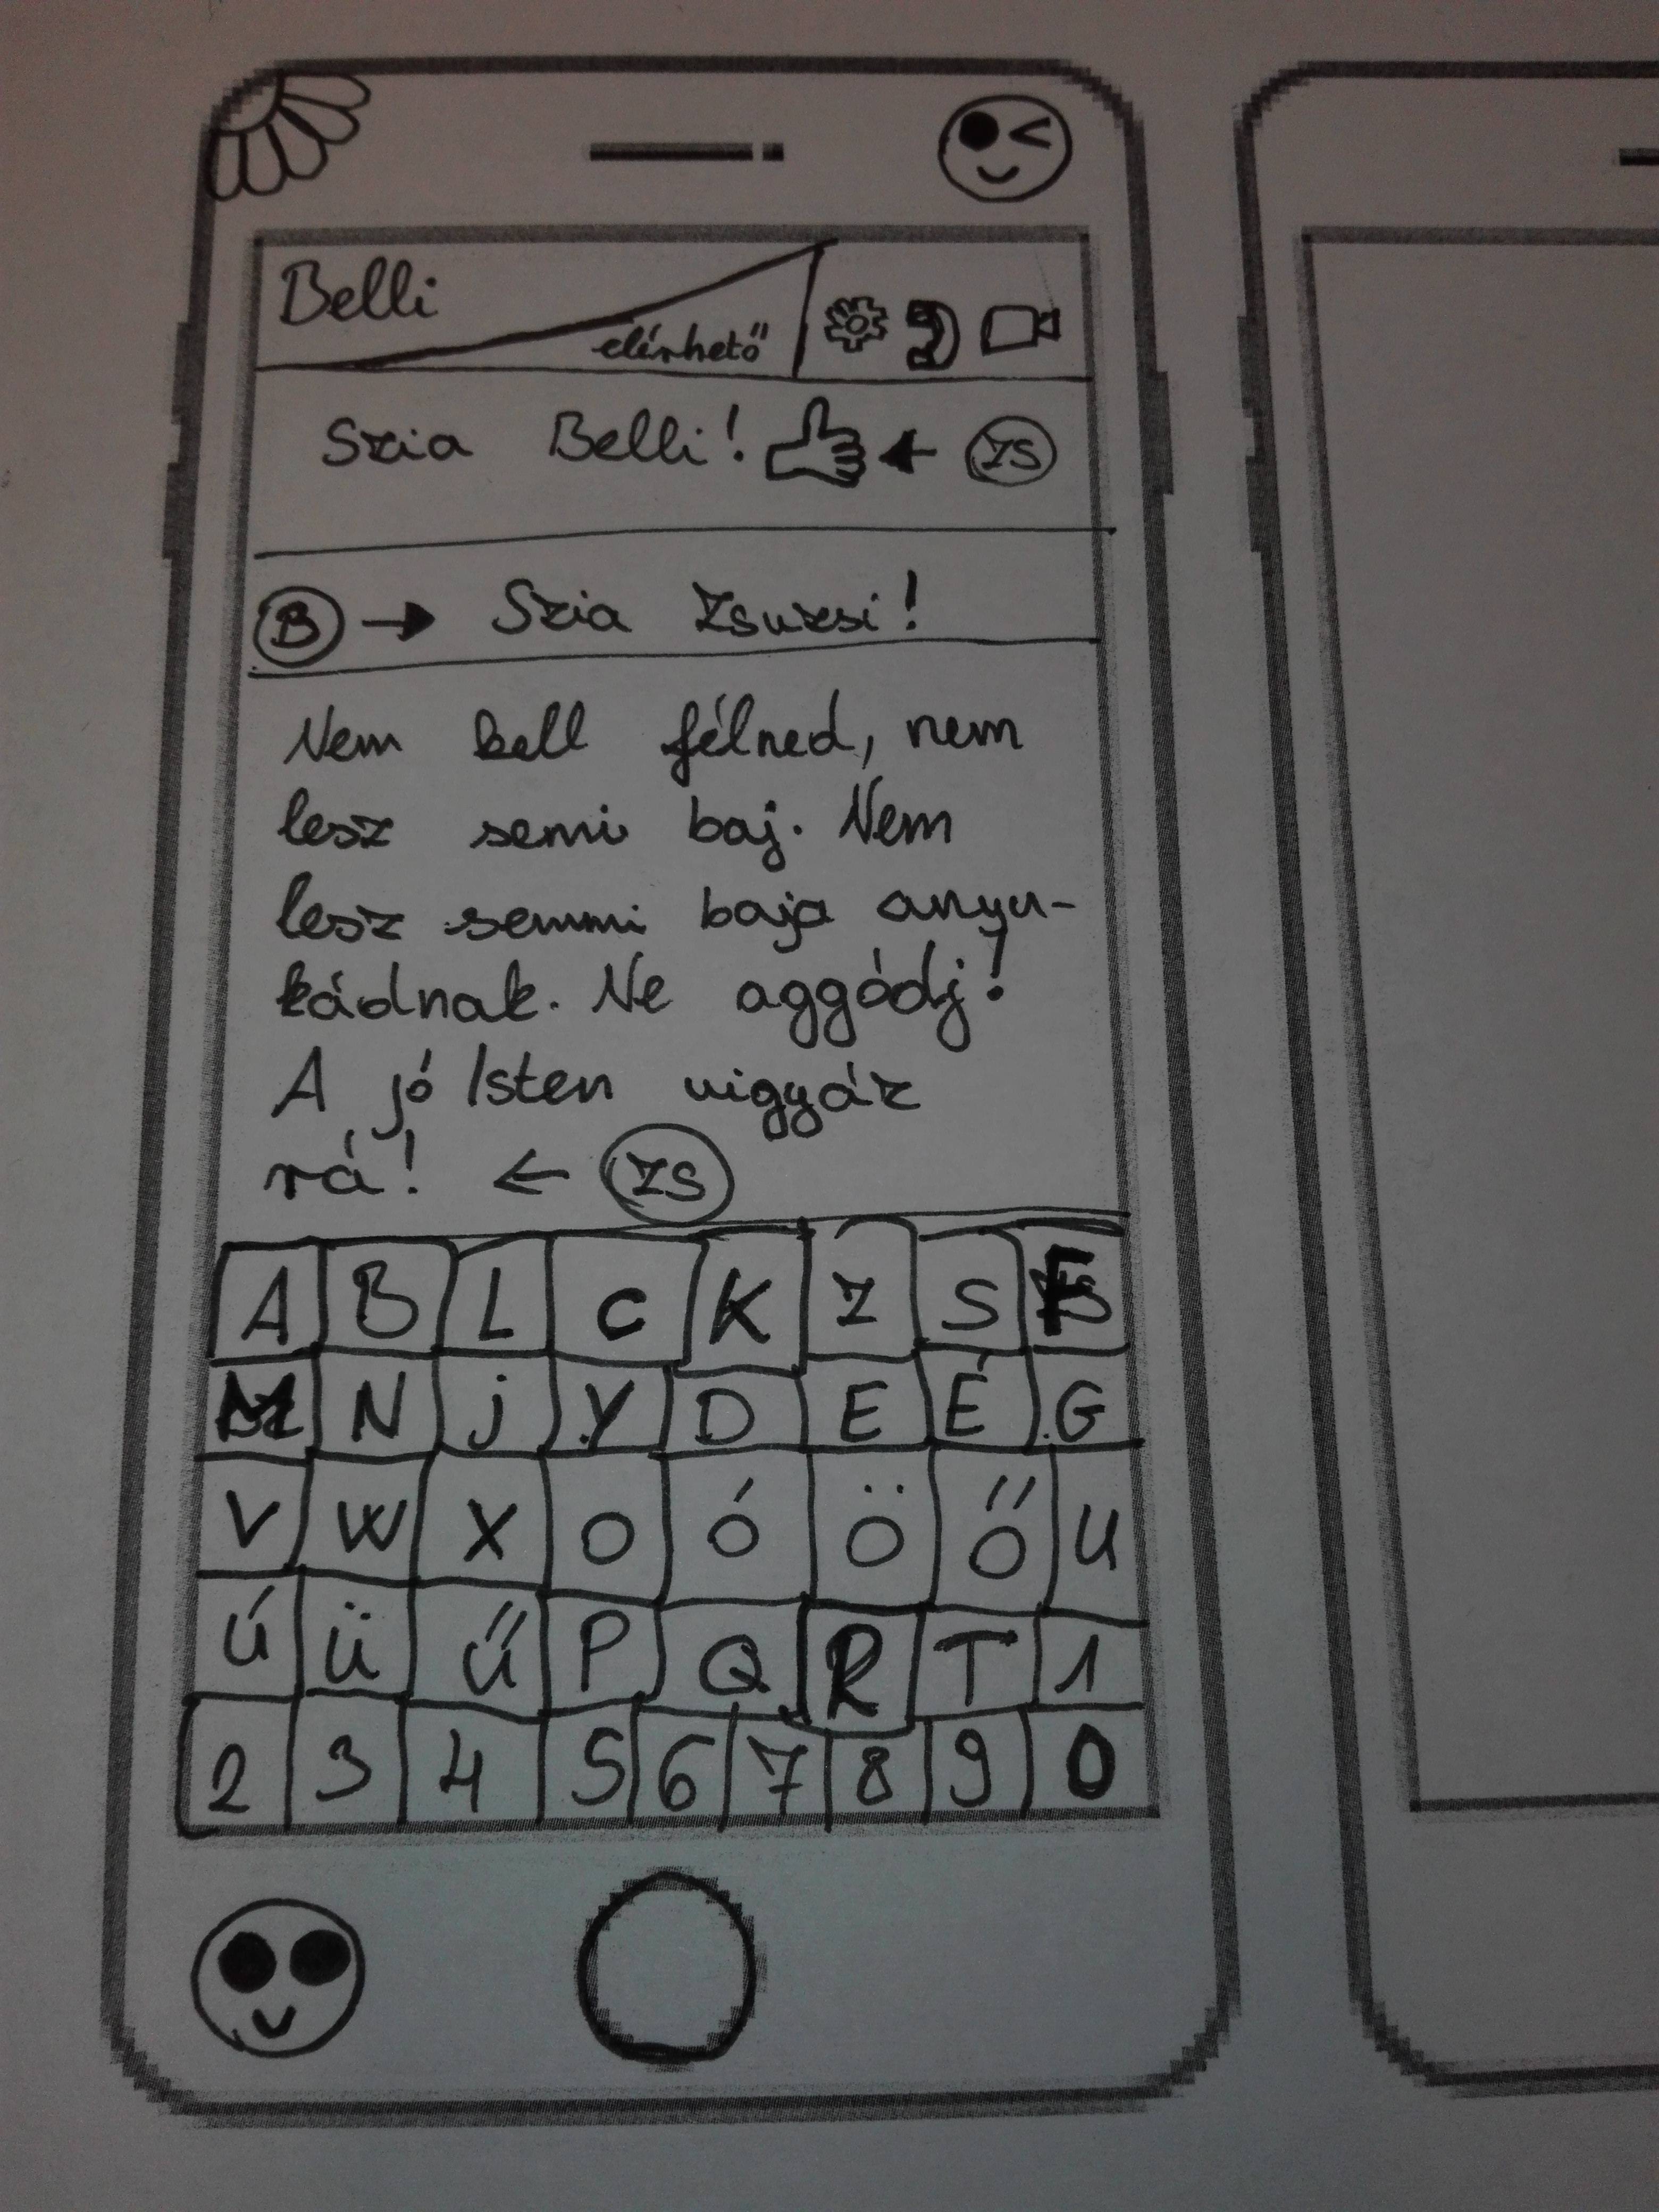 Belli
elérhető
Szia Belli! ZS
B Szia Zsuzsi!
Nem kell félned, nem
lesz semi baj. Nem
lesz semmi baja anyu-
kádnak. Ne aggódj!
A jó Isten vigyáz
rá! ZS
A B L C K Z S F
M N j Y D E É G
V W X O Ó Ö Ő U
Ú Ü Ű P Q R T 1
2 3 4 5 6 7 8 9 0